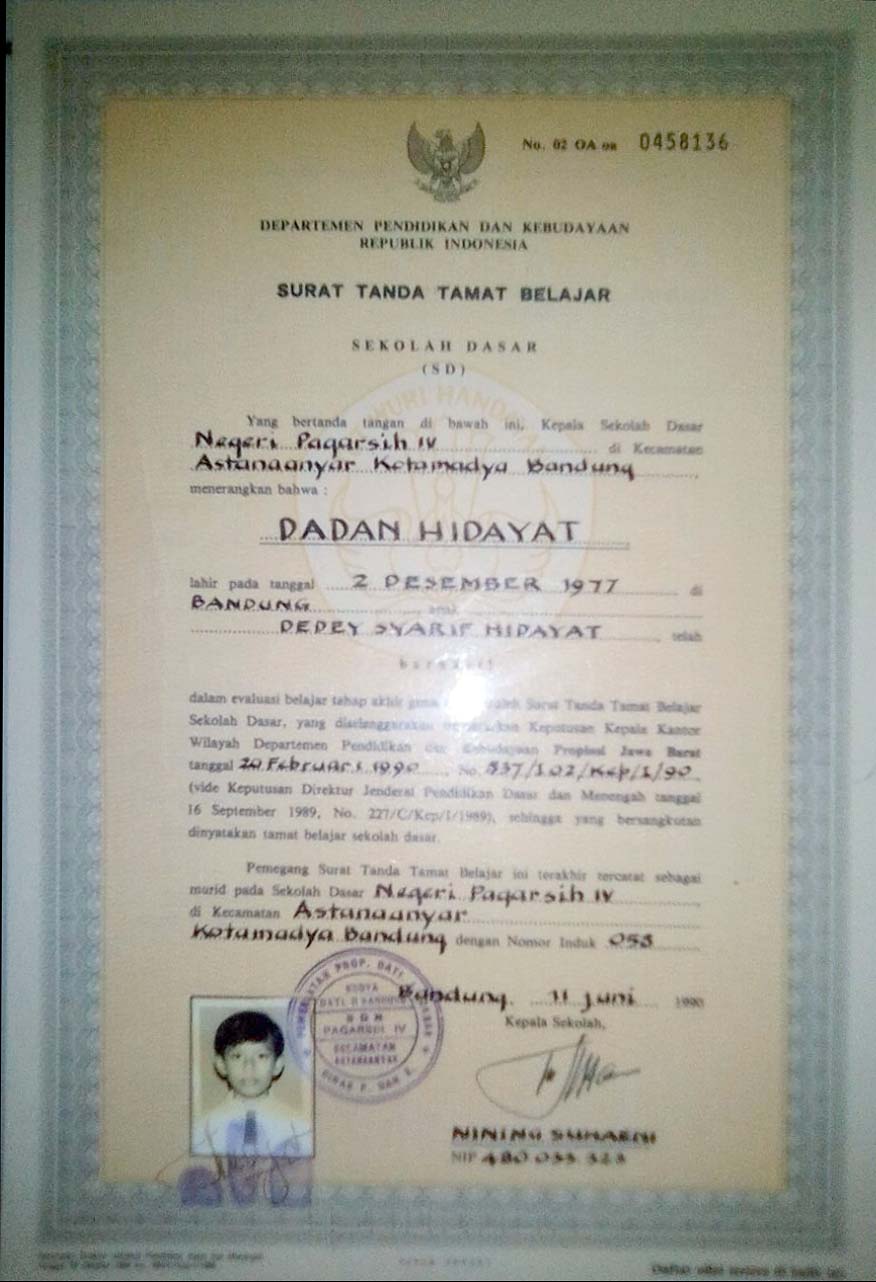 No. 02 OA oa 0458136
DEPARTEMEN PENDIDIKAN DAN KEBUDAYAAN
REPUBLIK INDONESIA
SURAT TANDA TAMAT BELAJAR
SEKOLAH DASAR
(SD)
Yang bertanda tangan di bawah ini, Kepala Sekolah Dasar
Negeri Pagarsih IV di Kecamatan
Astanaanyar Kotamadya Bandung,
menerangkan bahwa :
DADAN HIDAYAT
lahir pada tanggal 2 DESEMBER 1977 di
BANDUNG, anak
DEDEY SYARIF HIDAYAT, telah
berhasil
dalam evaluasi belajar tahap akhir guna Surat Tanda Tamat Belajar
Sekolah Dasar, yang diselenggarakan Keputusan Kepala Kantor
Wilayah Departemen Pendidikan dan Kebudayaan Propinsi Jawa Barat
tanggal 20 Februari 1990, No. 537/102/Kep/I/90
(vide Keputusan Direktur Jenderal Pendidikan Dasar dan Menengah tanggal
16 September 1989, No. 227/C/Kep/I/1989), sehingga yang bersangkutan
dinyatakan tamat belajar sekolah dasar.
Pemegang Surat Tanda Tamat Belajar ini terakhir tercatat sebagai
murid pada Sekolah Dasar Negeri Pagarsih IV
di Kecamatan Astanaanyar
Kotamadya Bandung dengan Nomor Induk 053
Bandung, 11 Juni 1990
Kepala Sekolah,
PAGARSIH IV
KECAMATAN
NINING SUHAENI
NIP 480 033 323